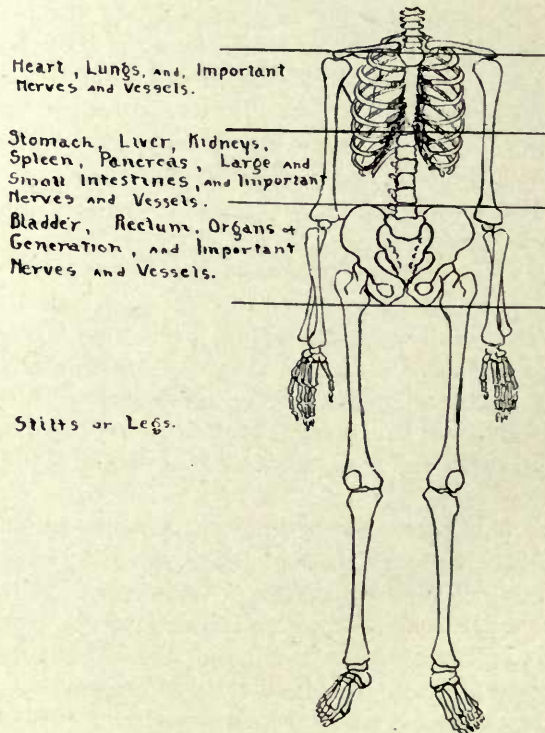 Heart, Lungs, and, Important
Nerves and Vessels.
Stomach, Liver, Kidneys,
Spleen, Pancreas, Large and
Small Intestines, and Important
Nerves and Vessels.
Bladder, Rectum, Organs of
Generation, and Important
Nerves and Vessels.
Stilts or Legs.